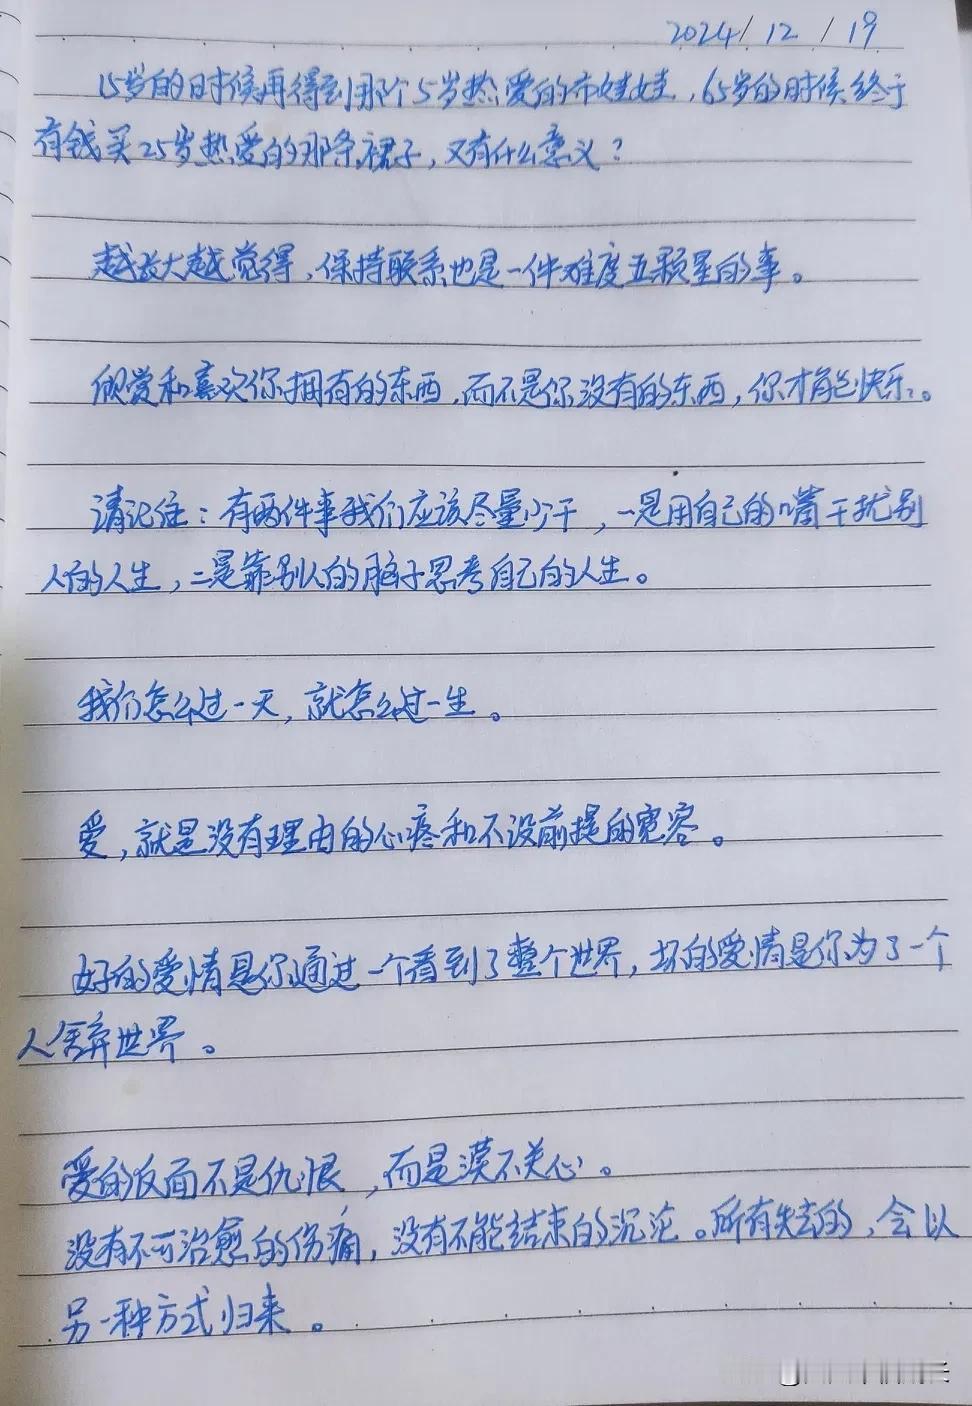 2024/12/19
15岁的时候再得到那个5岁热爱的布娃娃，65岁的时候终于
有钱买25岁热爱的那条裙子，又有什么意义？
越长大越觉得，保持联系也是一件难度五颗星的事。
欣赏和喜欢你拥有的东西，而不是你没有的东西，你才能快乐。
请记住：有两件事我们应该尽量少干，一是用自己的嘴干扰别
人的人生，二是靠别人的脑子思考自己的人生。
我们怎么过一天，就怎么过一生。
爱，就是没有理由的心疼和不设前提的宽容。
好的爱情是你通过一个看到了整个世界，坏的爱情是你为了一个
人舍弃世界。
爱的反面不是仇恨，而是漠不关心。
没有不可治愈的伤痛，没有不能结束的沉沦。所有失去的，会以
另一种方式归来。